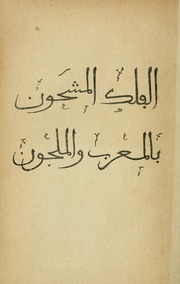 الفلك المشحون
بالمعرب والملحون